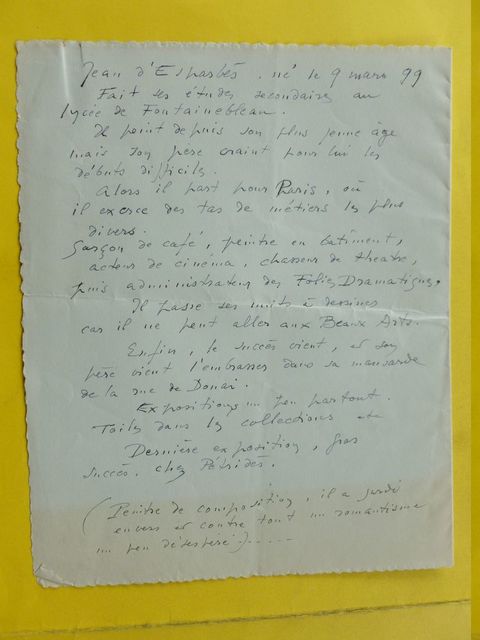 Jean d'Esparbès. né le 9 mars 99
Fait ses études secondaires au
lycée de Fontainebleau.
Il peint depuis son plus jeune âge
mais son père craint pour lui les
débuts difficiles.
Alors il part pour Paris, où
il exerce des tas de métiers les plus
divers.
Garçon de café, peintre en bâtiment,
acteur de cinéma, chasseur de theatre,
puis administrateur des Folies Dramatiques.
Il passe ses nuits à dessiner
car il ne peut aller aux Beaux Arts.
Enfin, le succès vient, et son
père vient l'embrasser dans sa mansarde
de la rue de Douai.
Expositions un peu partout.
Toiles dans les collections etc
Dernière exposition, gros
succès. chez Pétridès.
(Peintre de composition, il a gardé
envers et contre tout un romantisme
un peu désespéré).....